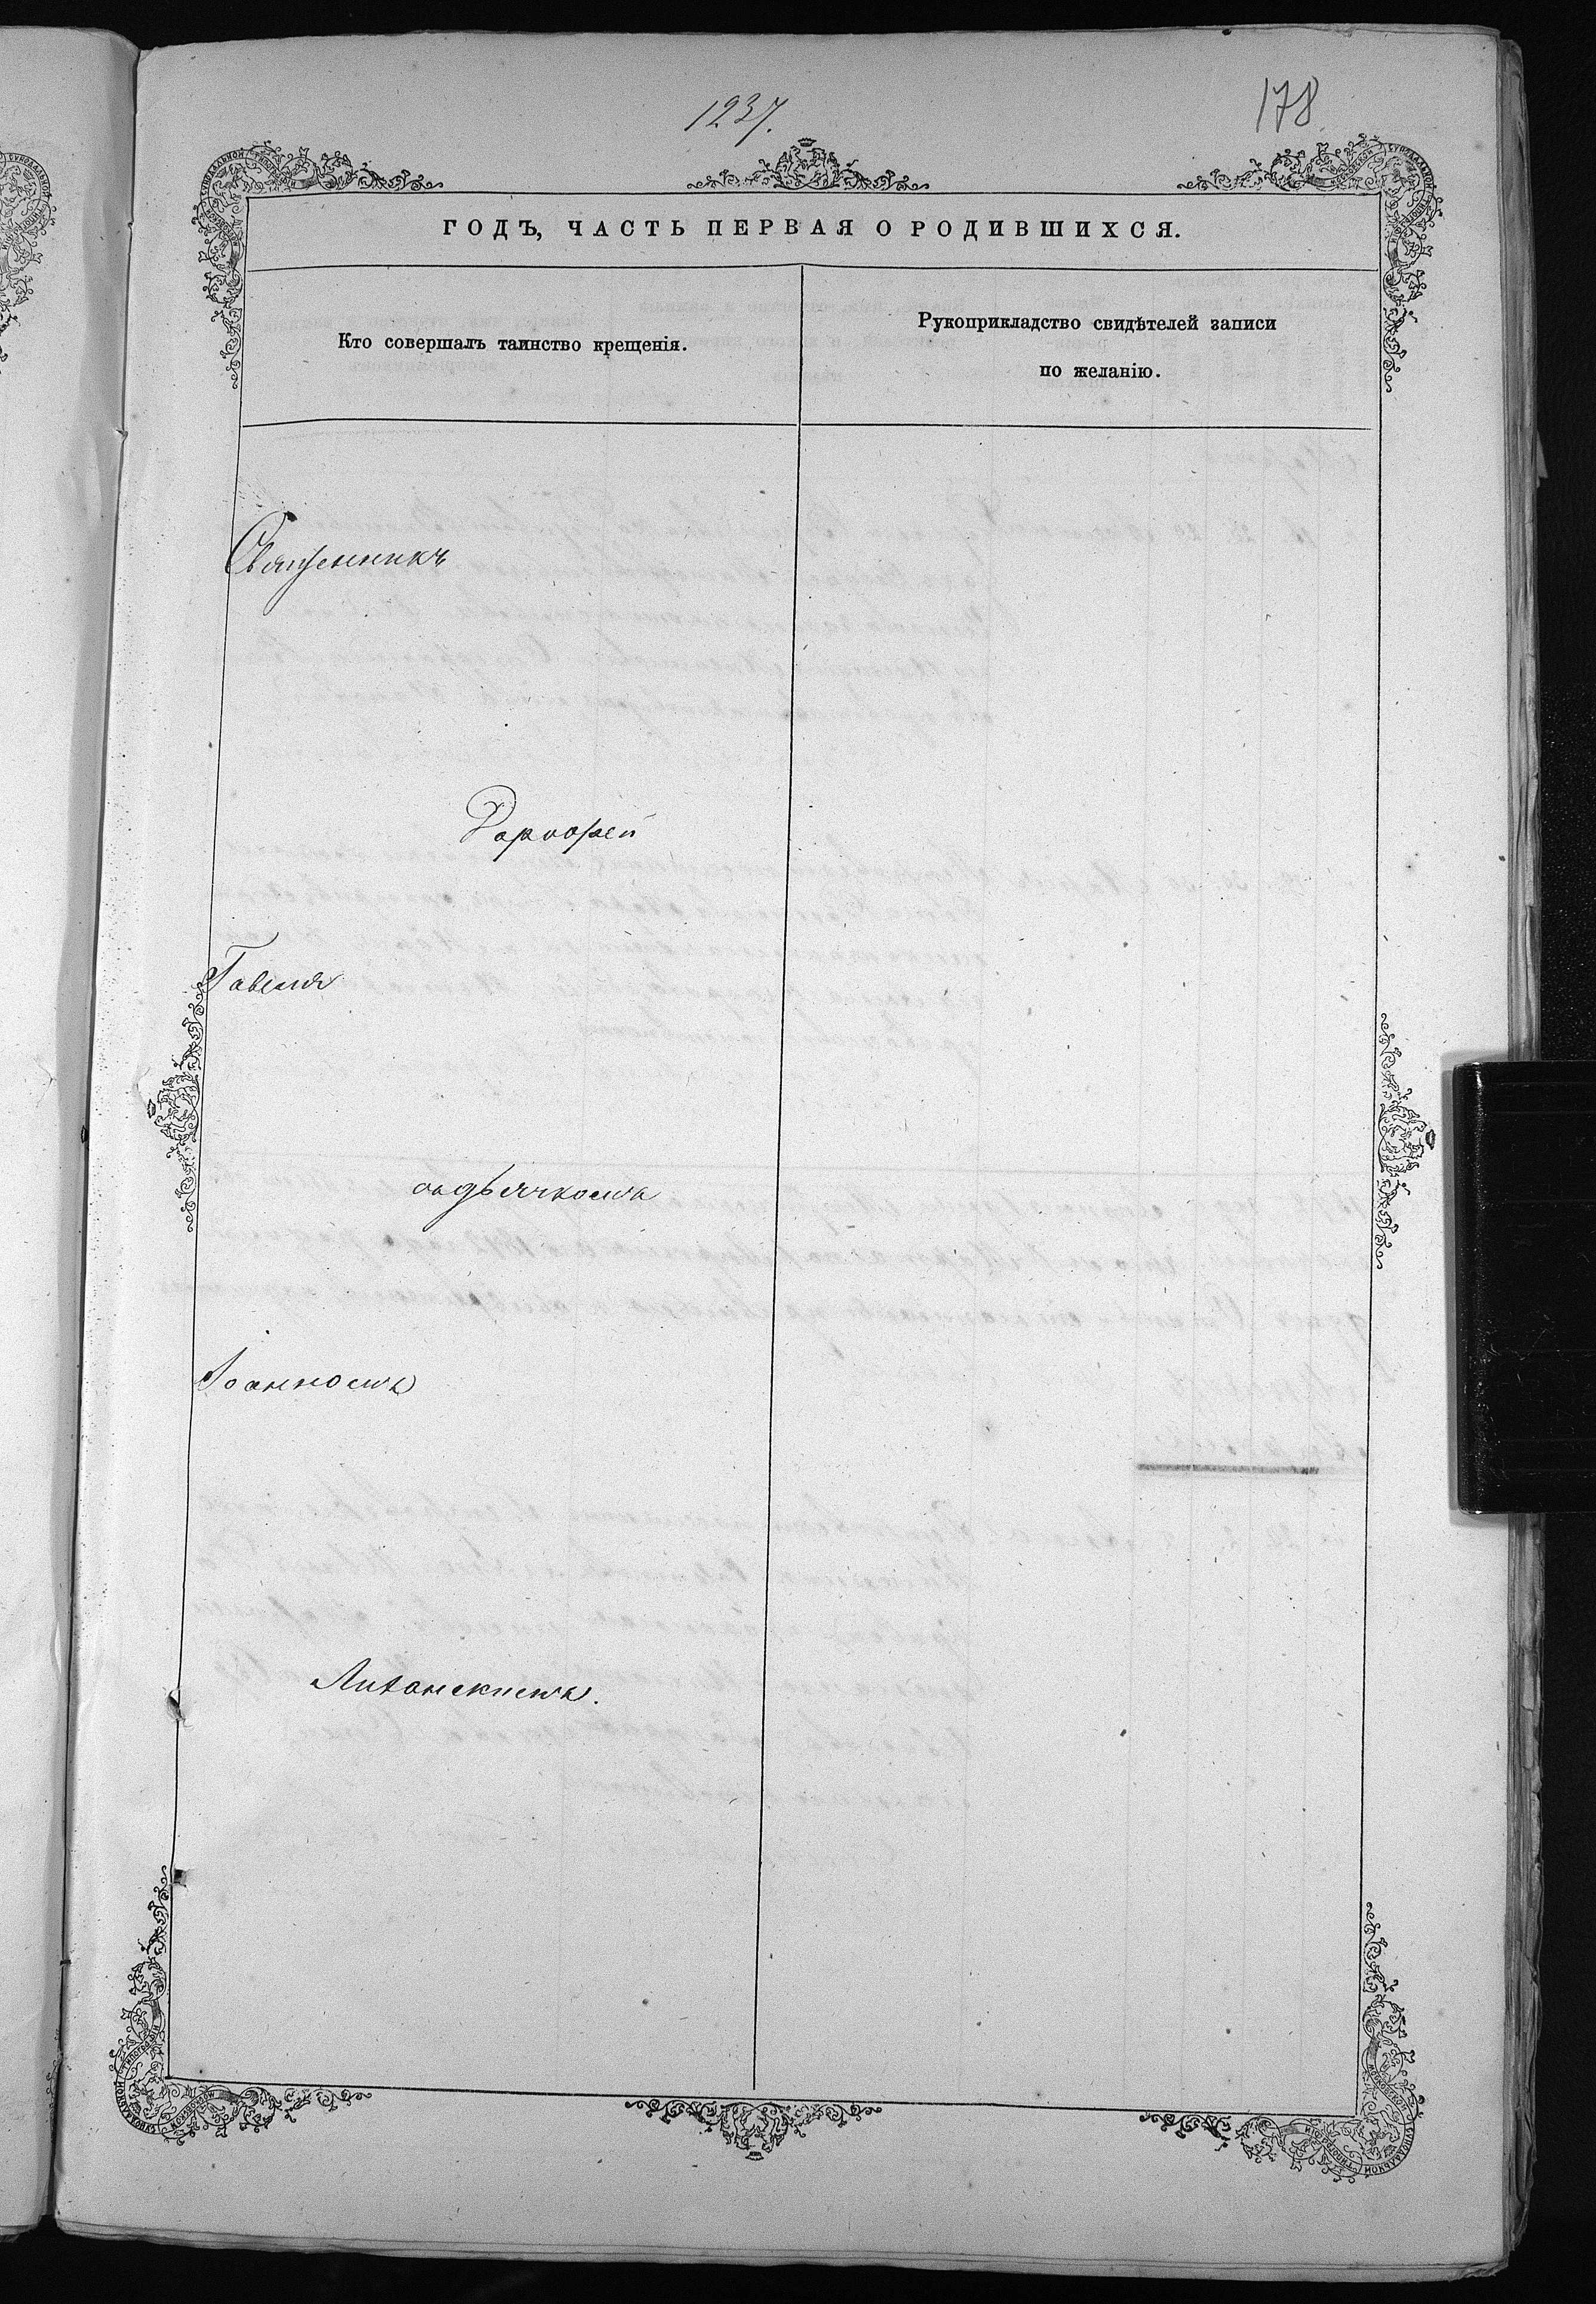 1237.
178
ГОДЪ, ЧАСТЬ ПЕРВАЯ О РОДИВШИХСЯ.
Кто совершалъ таинство крещенія.
Рукоприкладство свидѣтелей записи
по желанію.
Священникъ
Дорофей
Гавеля
съ дьячкомъ
Іоанномъ
Лиханскимъ.